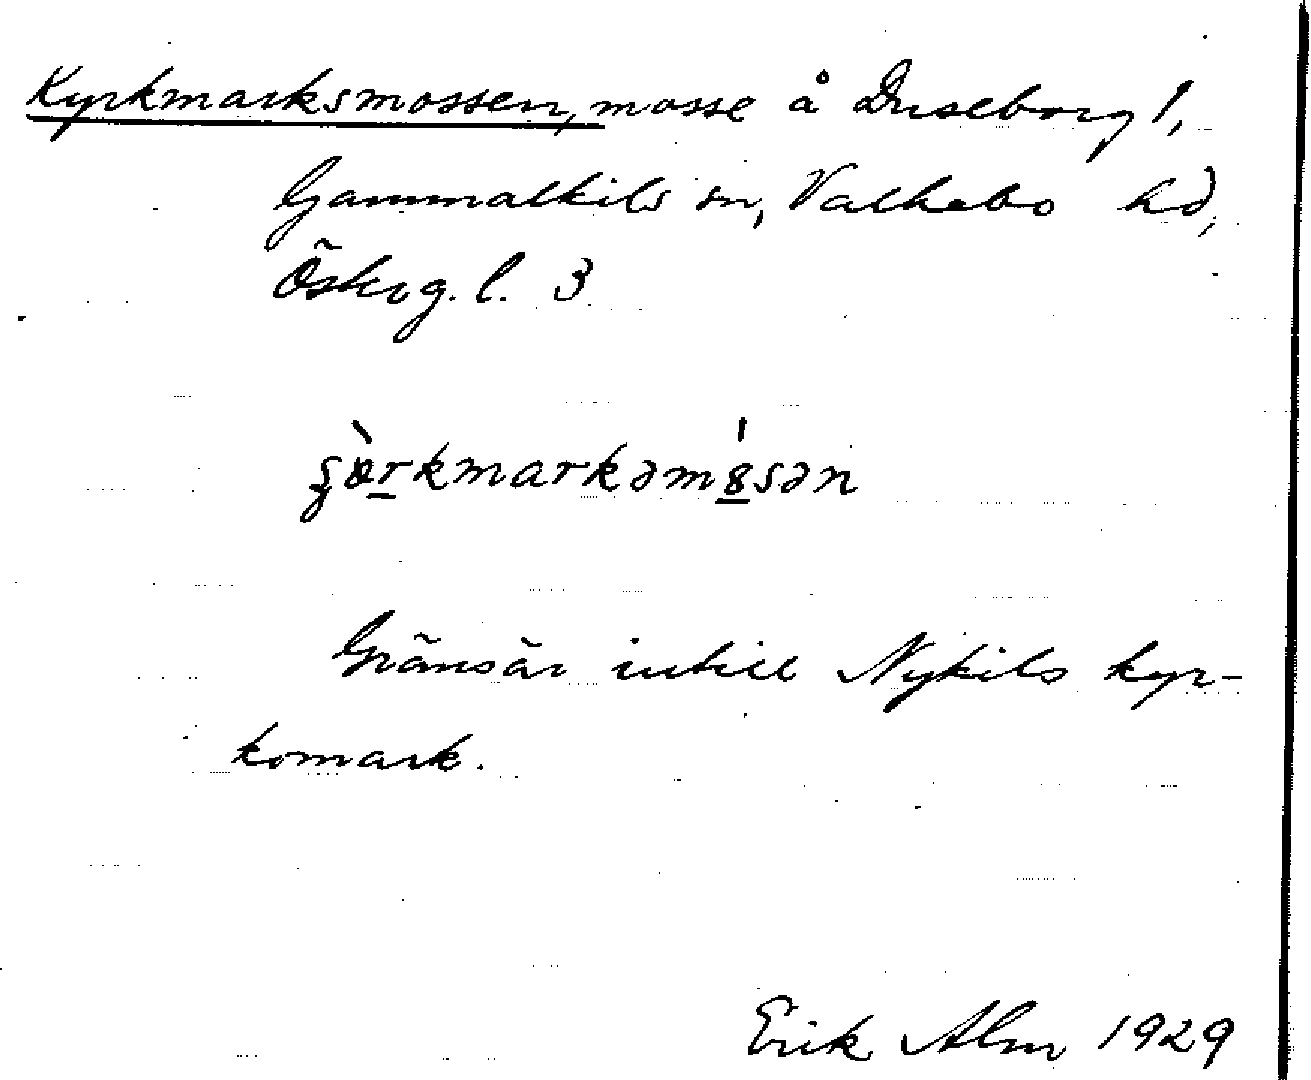 Kyrkmarksmossen, mosse å Duseborg 1,
Gammalkils sn, Valkebo hd,
Östерg. l. 3
Gränsar intill Nykils kyr-
komark.
Erik Alm 1929